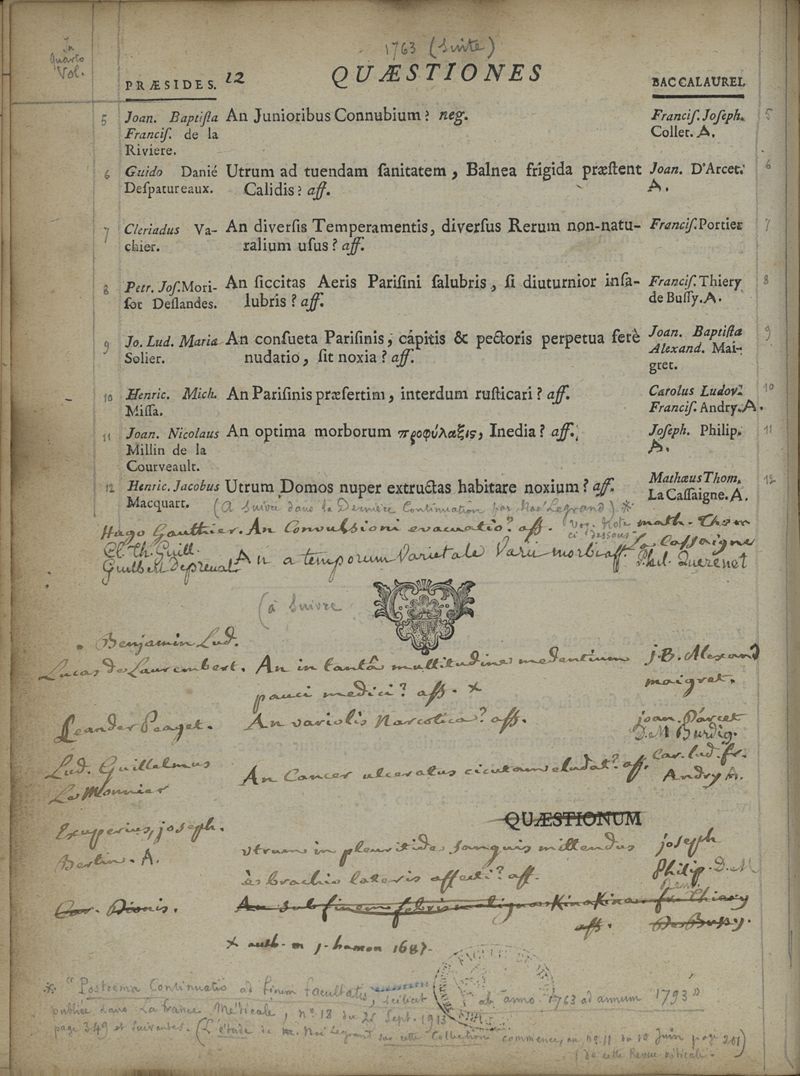 In
quarto
Vol.
1763 (Suite)
PRÆSIDES. 12 QUÆSTIONES BACCALAUREI.
5 Joan. Baptista An Junioribus Connubium ? neg. Francis. Joseph. 5
Francis. de la Collet. A.
Riviere.
6 Guido Danié Utrum ad tuendam sanitatem, Balnea frigida præstent Joan. D'Arcet. 6
Despatureaux. Calidis ? aff. A.
7 Cleriadus Va- An diversis Temperamentis, diversus Rerum non-natu- Francis. Portier 7
chier. ralium usus ? aff.
8 Petr. Jos. Mori- An siccitas Aeris Parisini salubris, si diuturnior insa- Francis. Thiery 8
sot Deslandes. lubris ? aff. de Bussy. A.
9 Jo. Lud. Maria An consueta Parisinis, cápitis & pectoris perpetua ferè Joan. Baptista 9
Solier. nudatio, sit noxia ? aff. Alexand. Mai-
gret.
10 Henric. Mich. An Parisinis præsertim, interdum rusticari ? aff. Carolus Ludov. 10
Missa. Francis. Andry. A.
11 Joan. Nicolaus An optima morborum προφύλαξις, Inedia ? aff. Joseph. Philip. 11
Millin de la A.
Courveault.
12 Henric. Jacobus Utrum Domos nuper extructas habitare noxium ? aff. Mathæus Thom. 12
Macquart. La Cassaigne. A.
(à Suivre dans la Dernière Continuation par Noé Legrand) *
Hugo Gauthier. An Convulsioni evacuatio ? aff. (Voy. Note math. Thom
ci dessous) la Cassaigne
Cl. Th. Guill.
Guilbert De preval. An a temporum Varietate Varii morbi aff. Phil. Querenet
(à Suivre
Benjamin Lud.
Lucas de Laurembert. An in tantâ multitudine medentium J. B. Alexand
pauci medici ? aff. x maigret.
Leander Peaget. An variolis Narcotica ? aff. joan. Darcet
D. M Burdig.
Lud. Guillelmus An Cancer ulceratus cicutam eludat ? aff. Car. lud. fr.
Le Monnier Andry A.
QUÆSTIONUM
Exuperius, joseph. joseph
Bertin. A. utrum in pleuritide sanguis mittendus Philip. D. M
è brachio lateris affecti ? aff.
Car. Dionis. An sub finem febris malignæ KinaKina fr. Thiery
aff. De Bussy.
x auth. m j. hamon 1687.
* "Postrema Continuatio ad finem facultatis, scilicet ab anno 1763 ad annum 1793"
publiée dans La France Médicale, n° 18 du 25 Sept. 1913
page 349 et suivantes. (L'étude de M. Noé Legrand sur cette "Collection" commence, au n° 11 du 10 Juin page 201)
(de cette Revue médicale.